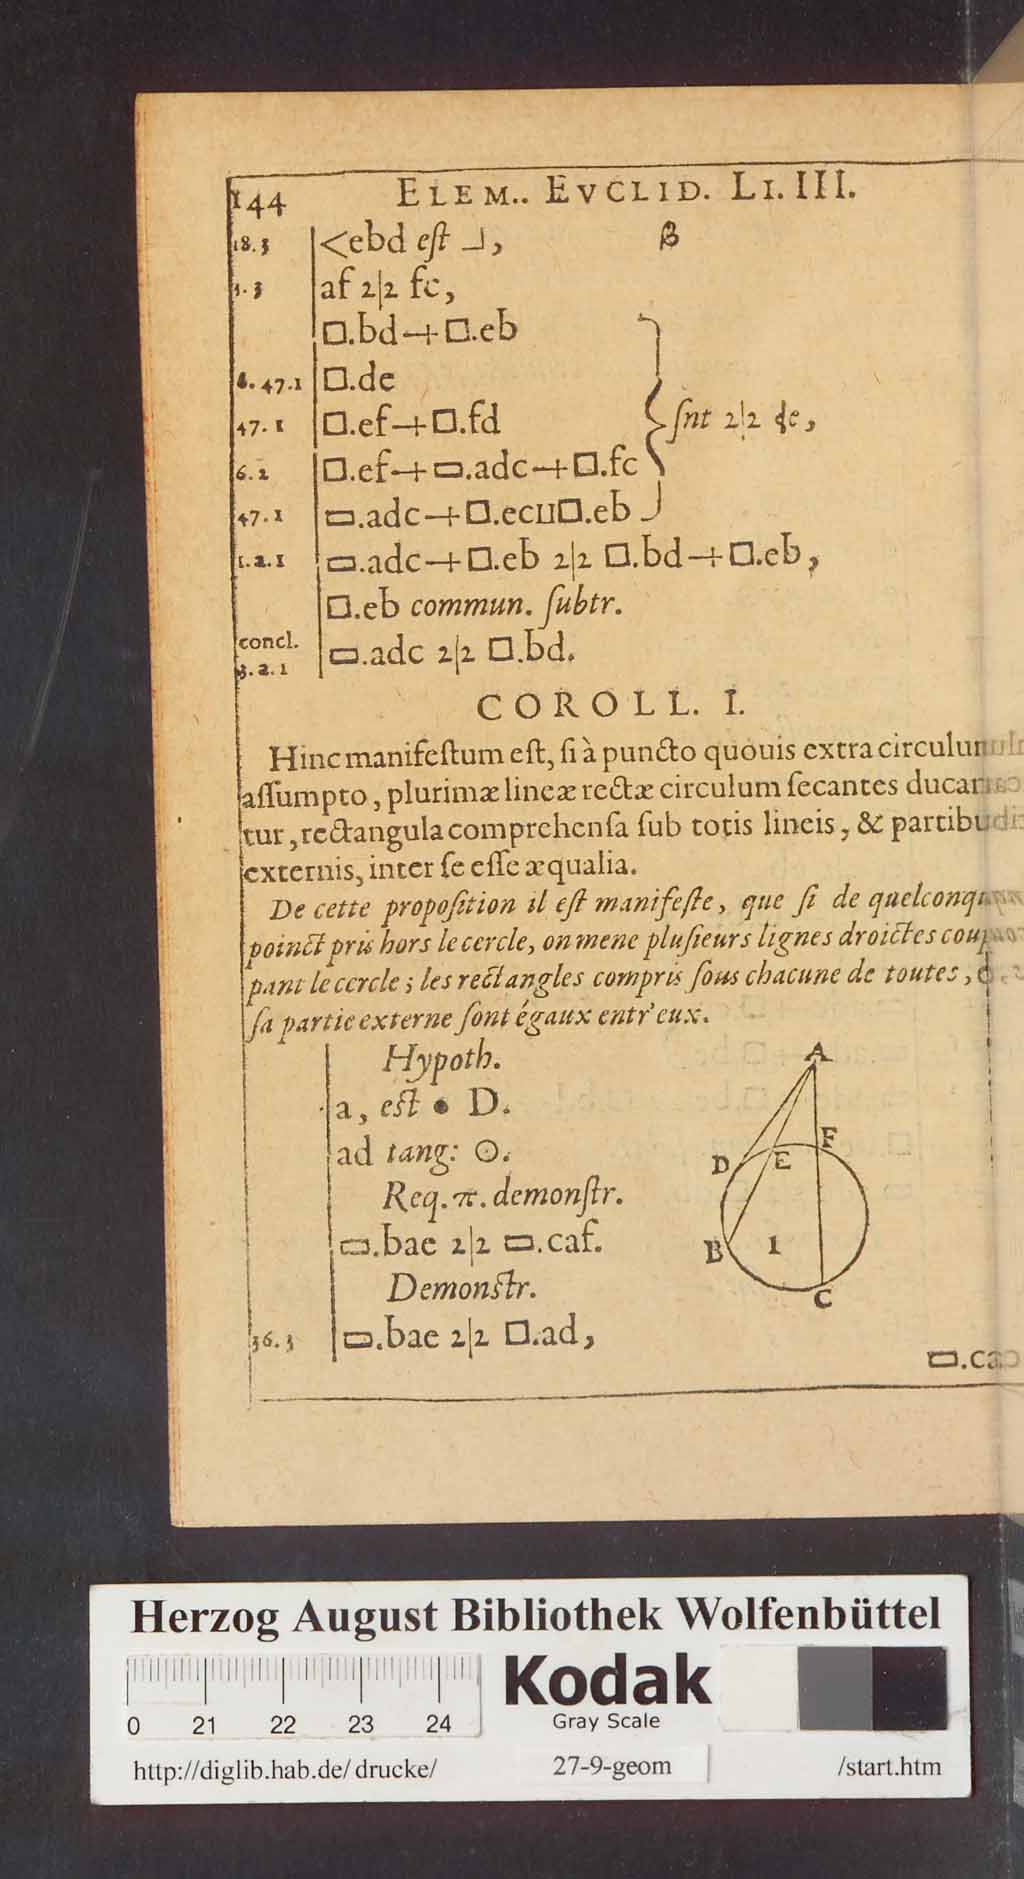 144 ELEM.. EVCLID. LI. III.
18.3 <ebd eſt ┘, β
3.3 af 2|2 fc,
□.bd+□.eb
β. 47.1 □.de
47.1 □.ef+□.fd ſnt 2|2 de,
6.2 □.ef+▭.adc+□.fc
47.1 ▭.adc+□.ecu□.eb
1.a.1 ▭.adc+□.eb 2|2 □.bd+□.eb,
□.eb commun. ſubtr.
concl.
3.a.1 ▭.adc 2|2 □.bd.
COROLL. I.
Hinc manifeſtum eſt, ſi à puncto quouis extra circulum
aſſumpto, plurimæ lineæ rectæ circulum ſecantes ducan
tur, rectangula comprehenſa ſub totis lineis, & partibus
externis, inter ſe eſſe æqualia.
De cette propoſition il eſt manifeſte, que ſi de quelconque
poinct pris hors le cercle, on mene pluſieurs lignes droictes coup
pant le cercle; les rectangles compris ſous chacune de toutes, &
ſa partie externe ſont égaux entr'eux.
Hypoth.
a, eſt • D.
ad tang: ⊙.
Req. π. demonſtr.
▭.bae 2|2 ▭.caf.
Demonſtr.
36.3 ▭.bae 2|2 □.ad,
A
F
D E
B 1
C
▭.ca
Herzog August Bibliothek Wolfenbüttel
Kodak
Gray Scale
0 21 22 23 24
http://diglib.hab.de/drucke/ 27-9-geom /start.htm